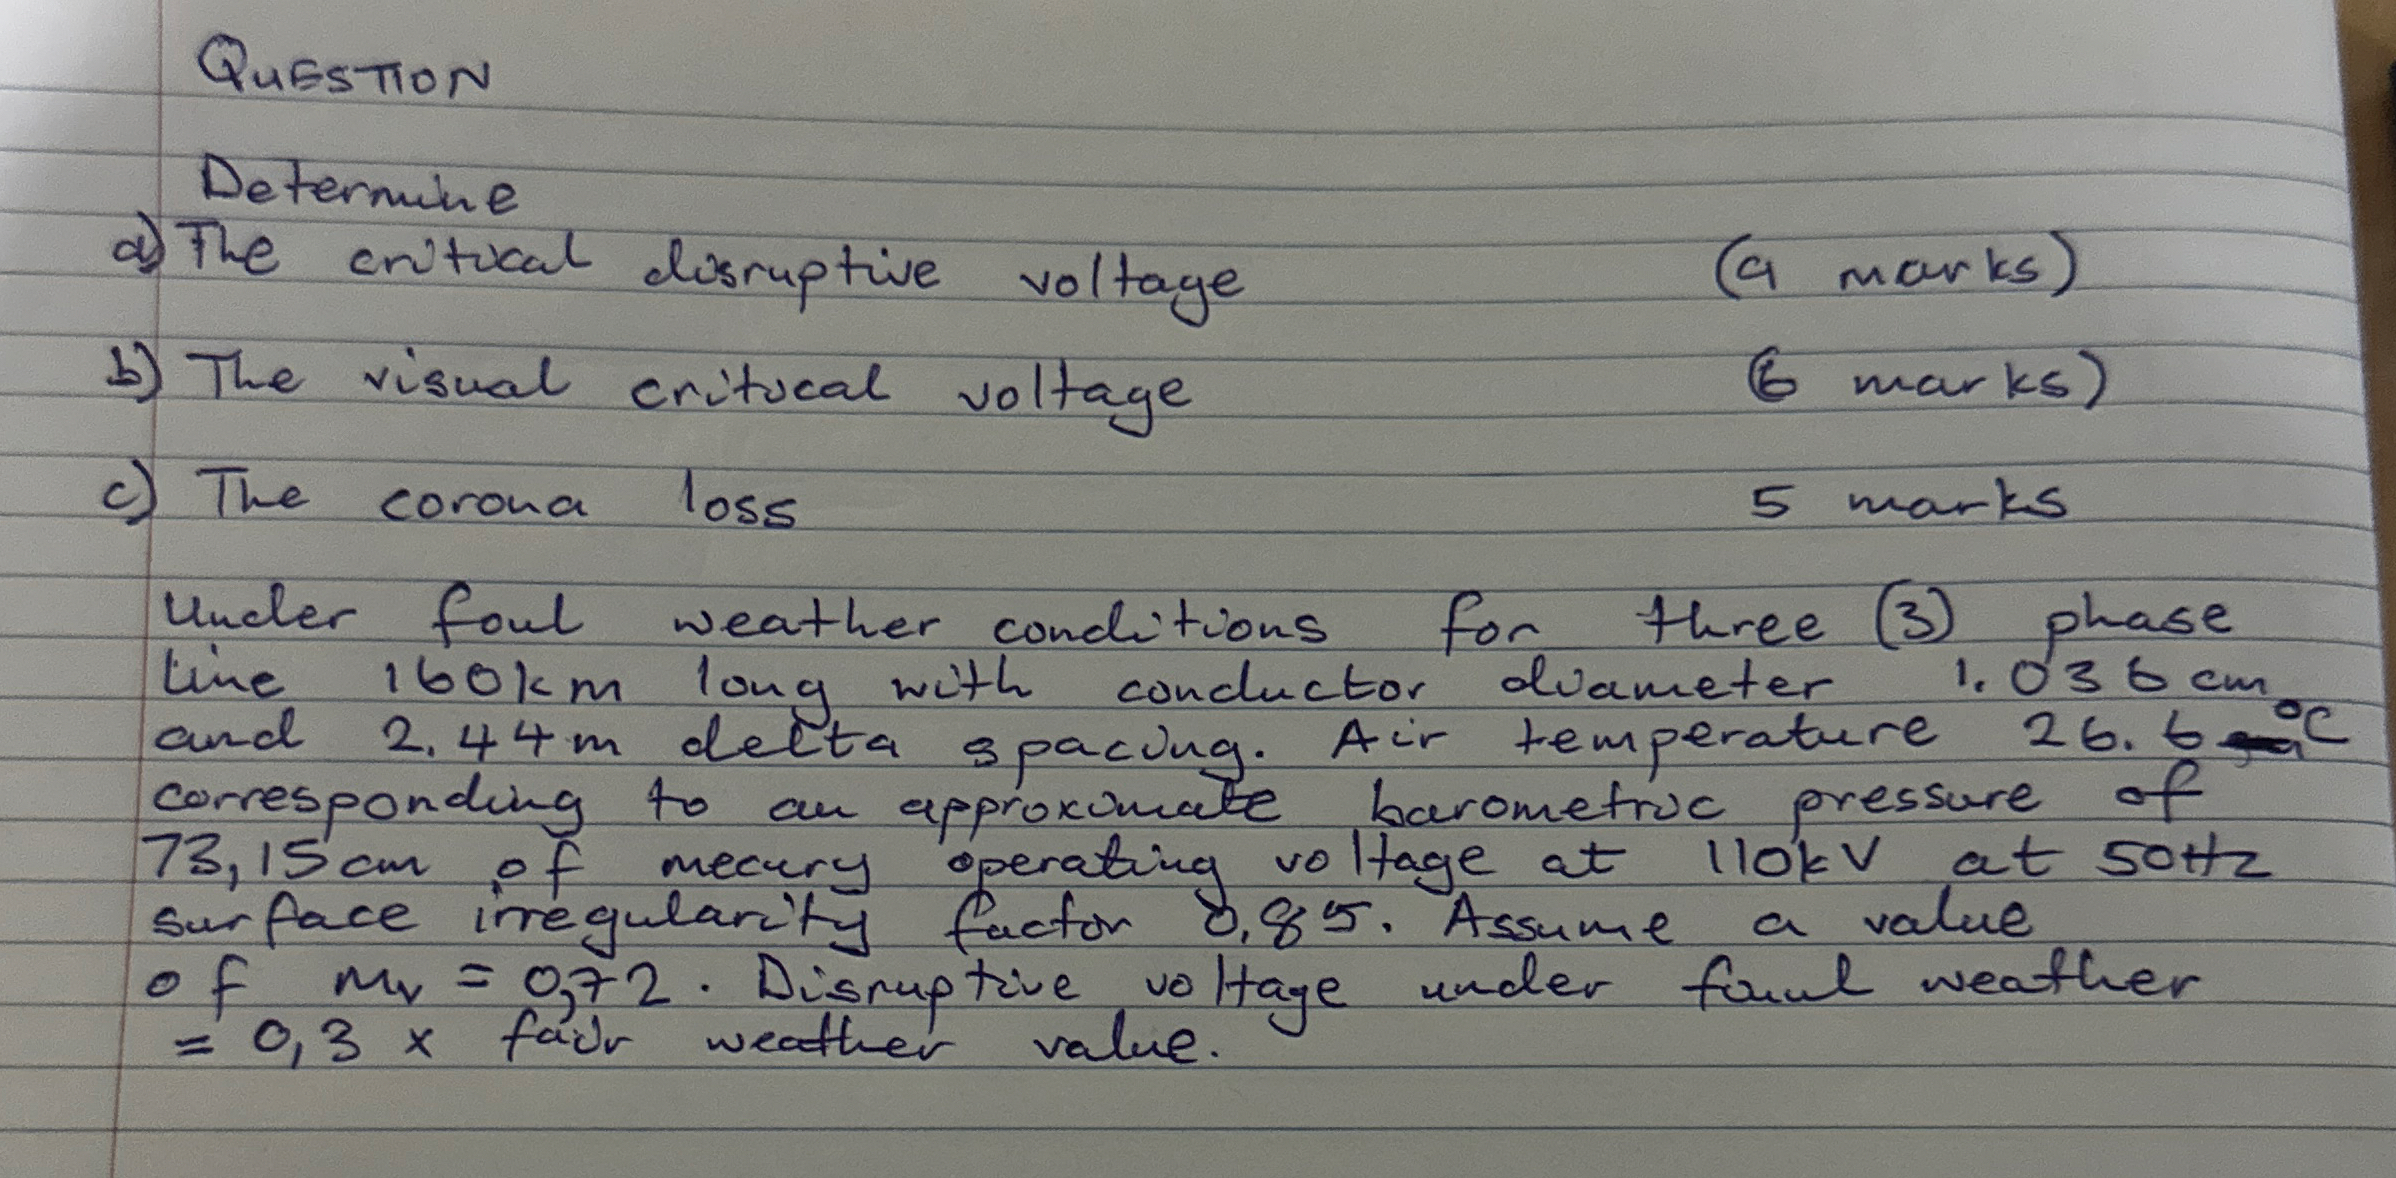 QUESTION
Determine
a) The critical disruptive voltage (9 marks)
b) The visual critical voltage (6 marks)
c) The corona loss 5 marks
Under foul weather conditions for three (3) phase
line 160km long with conductor diameter 1.036 cm
and 2.44m delta spacing. Air temperature 26.6 °C
corresponding to an approximate barometric pressure of
73,15cm of mecury operating voltage at 110kV at 50Hz
surface irregularity factor 0,85. Assume a value
of Mv = 0,72. Disruptive voltage under foul weather
= 0,3 x fair weather value.